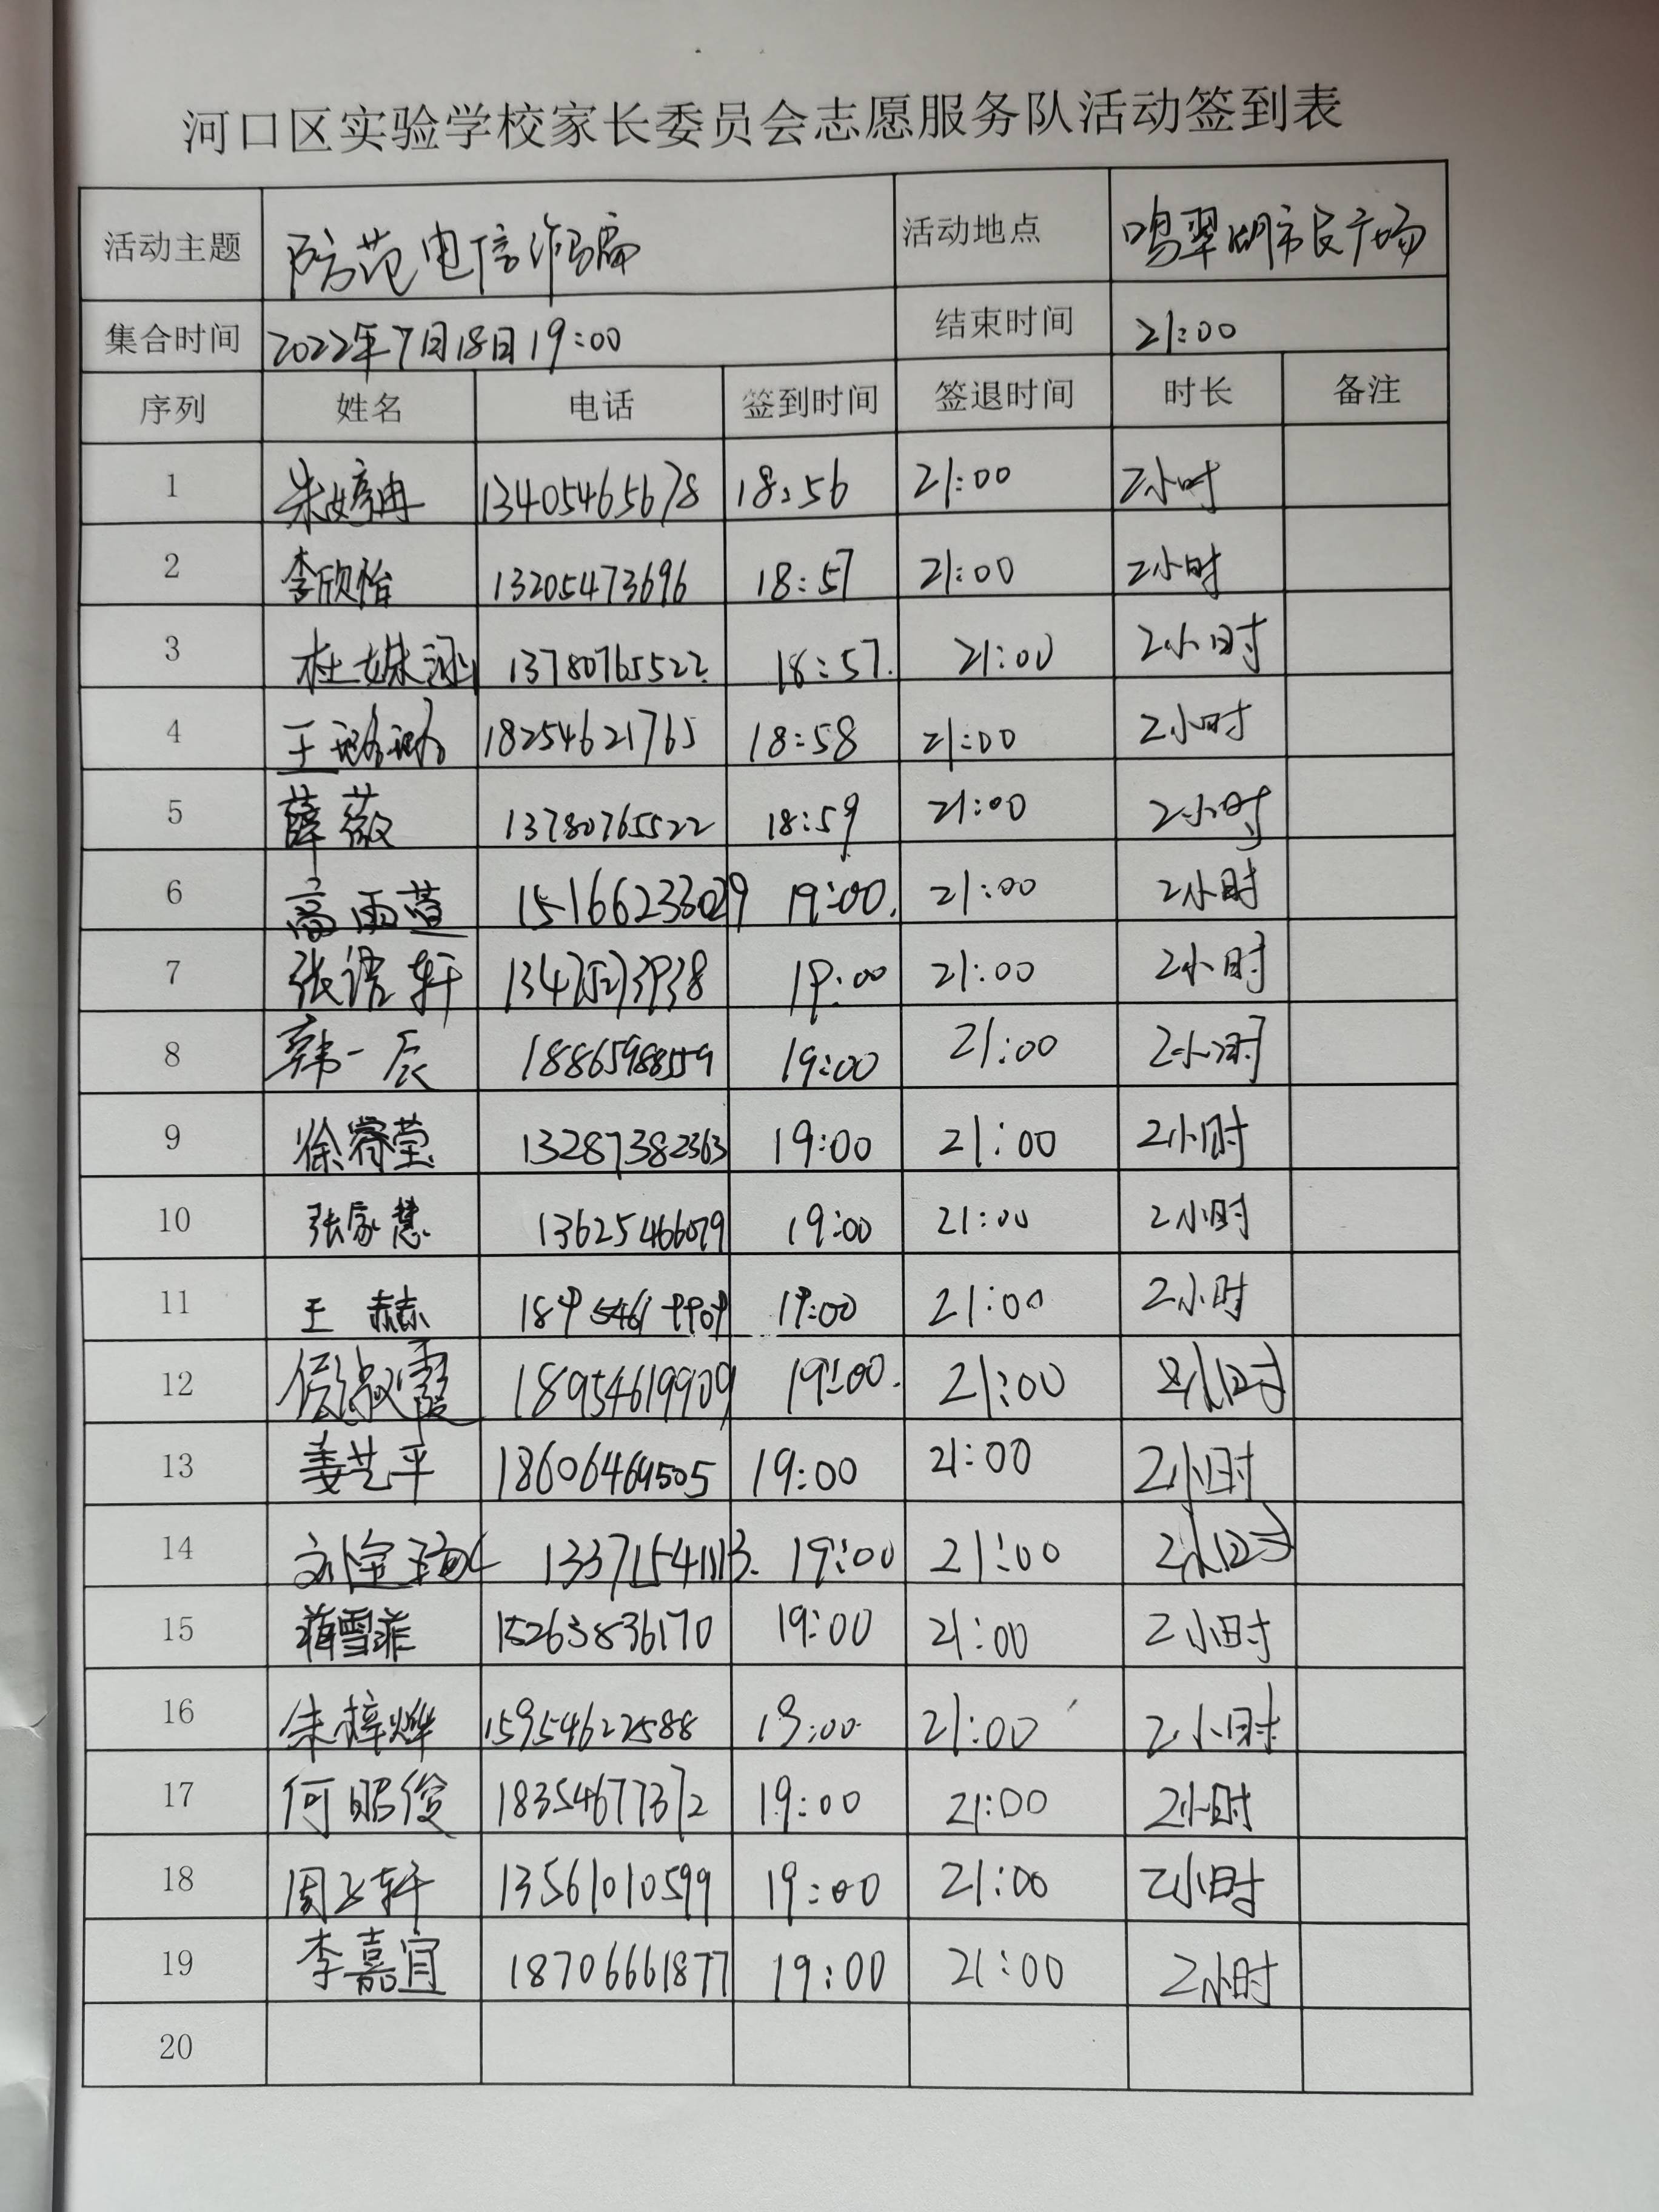 河口区实验学校家长委员会志愿服务队活动签到表
活动主题 防范电信诈骗 活动地点 鸣翠湖市民广场
集合时间 2022年7月18日19:00 结束时间 21:00
序列 姓名 电话 签到时间 签退时间 时长 备注
1 朱婷冉 13405465678 18:56 21:00 2小时
2 李欣怡 13205473696 18:57 21:00 2小时
3 杜姝涵 13780765522 18:57 21:00 2小时
4 王 18254621765 18:58 21:00 2小时
5 薛薇 13780765522 18:59 21:00 2小时
6 高雨萱 15166233029 19:00 21:00 2小时
7 张诺轩 19:00 21:00 2小时
8 韩一辰 18865988559 19:00 21:00 2小时
9 徐睿莹 13287382363 19:00 21:00 2小时
10 张家慧 13625466079 19:00 21:00 2小时
11 王赫 18954619909 19:00 21:00 2小时
12 侯淑霞 18954619909 19:00 21:00 2小时
13 姜艺平 18606469505 19:00 21:00 2小时
14 刘宝 13371541113 19:00 21:00 2小时
15 蒋雪菲 15263836170 19:00 21:00 2小时
16 朱梓烨 15954622588 19:00 21:00 2小时
17 何昭俊 18354677372 19:00 21:00 2小时
18 周子轩 13561010599 19:00 21:00 2小时
19 李嘉宜 18706661877 19:00 21:00 2小时
20